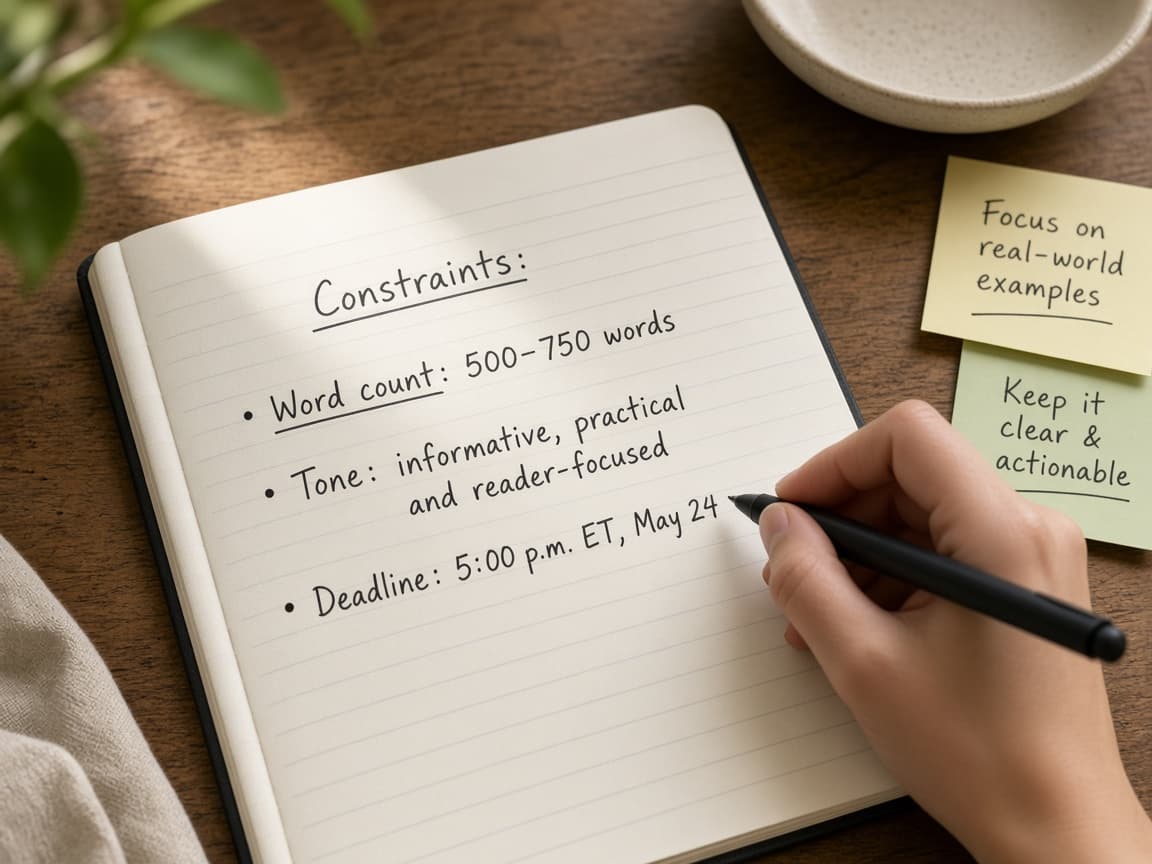 Constraints:
• Word count: 500–750 words
• Tone: informative, practical
and reader-focused
• Deadline: 5:00 p.m. ET, May 24
Focus on
real-world
examples
Keep it
clear &
actionable